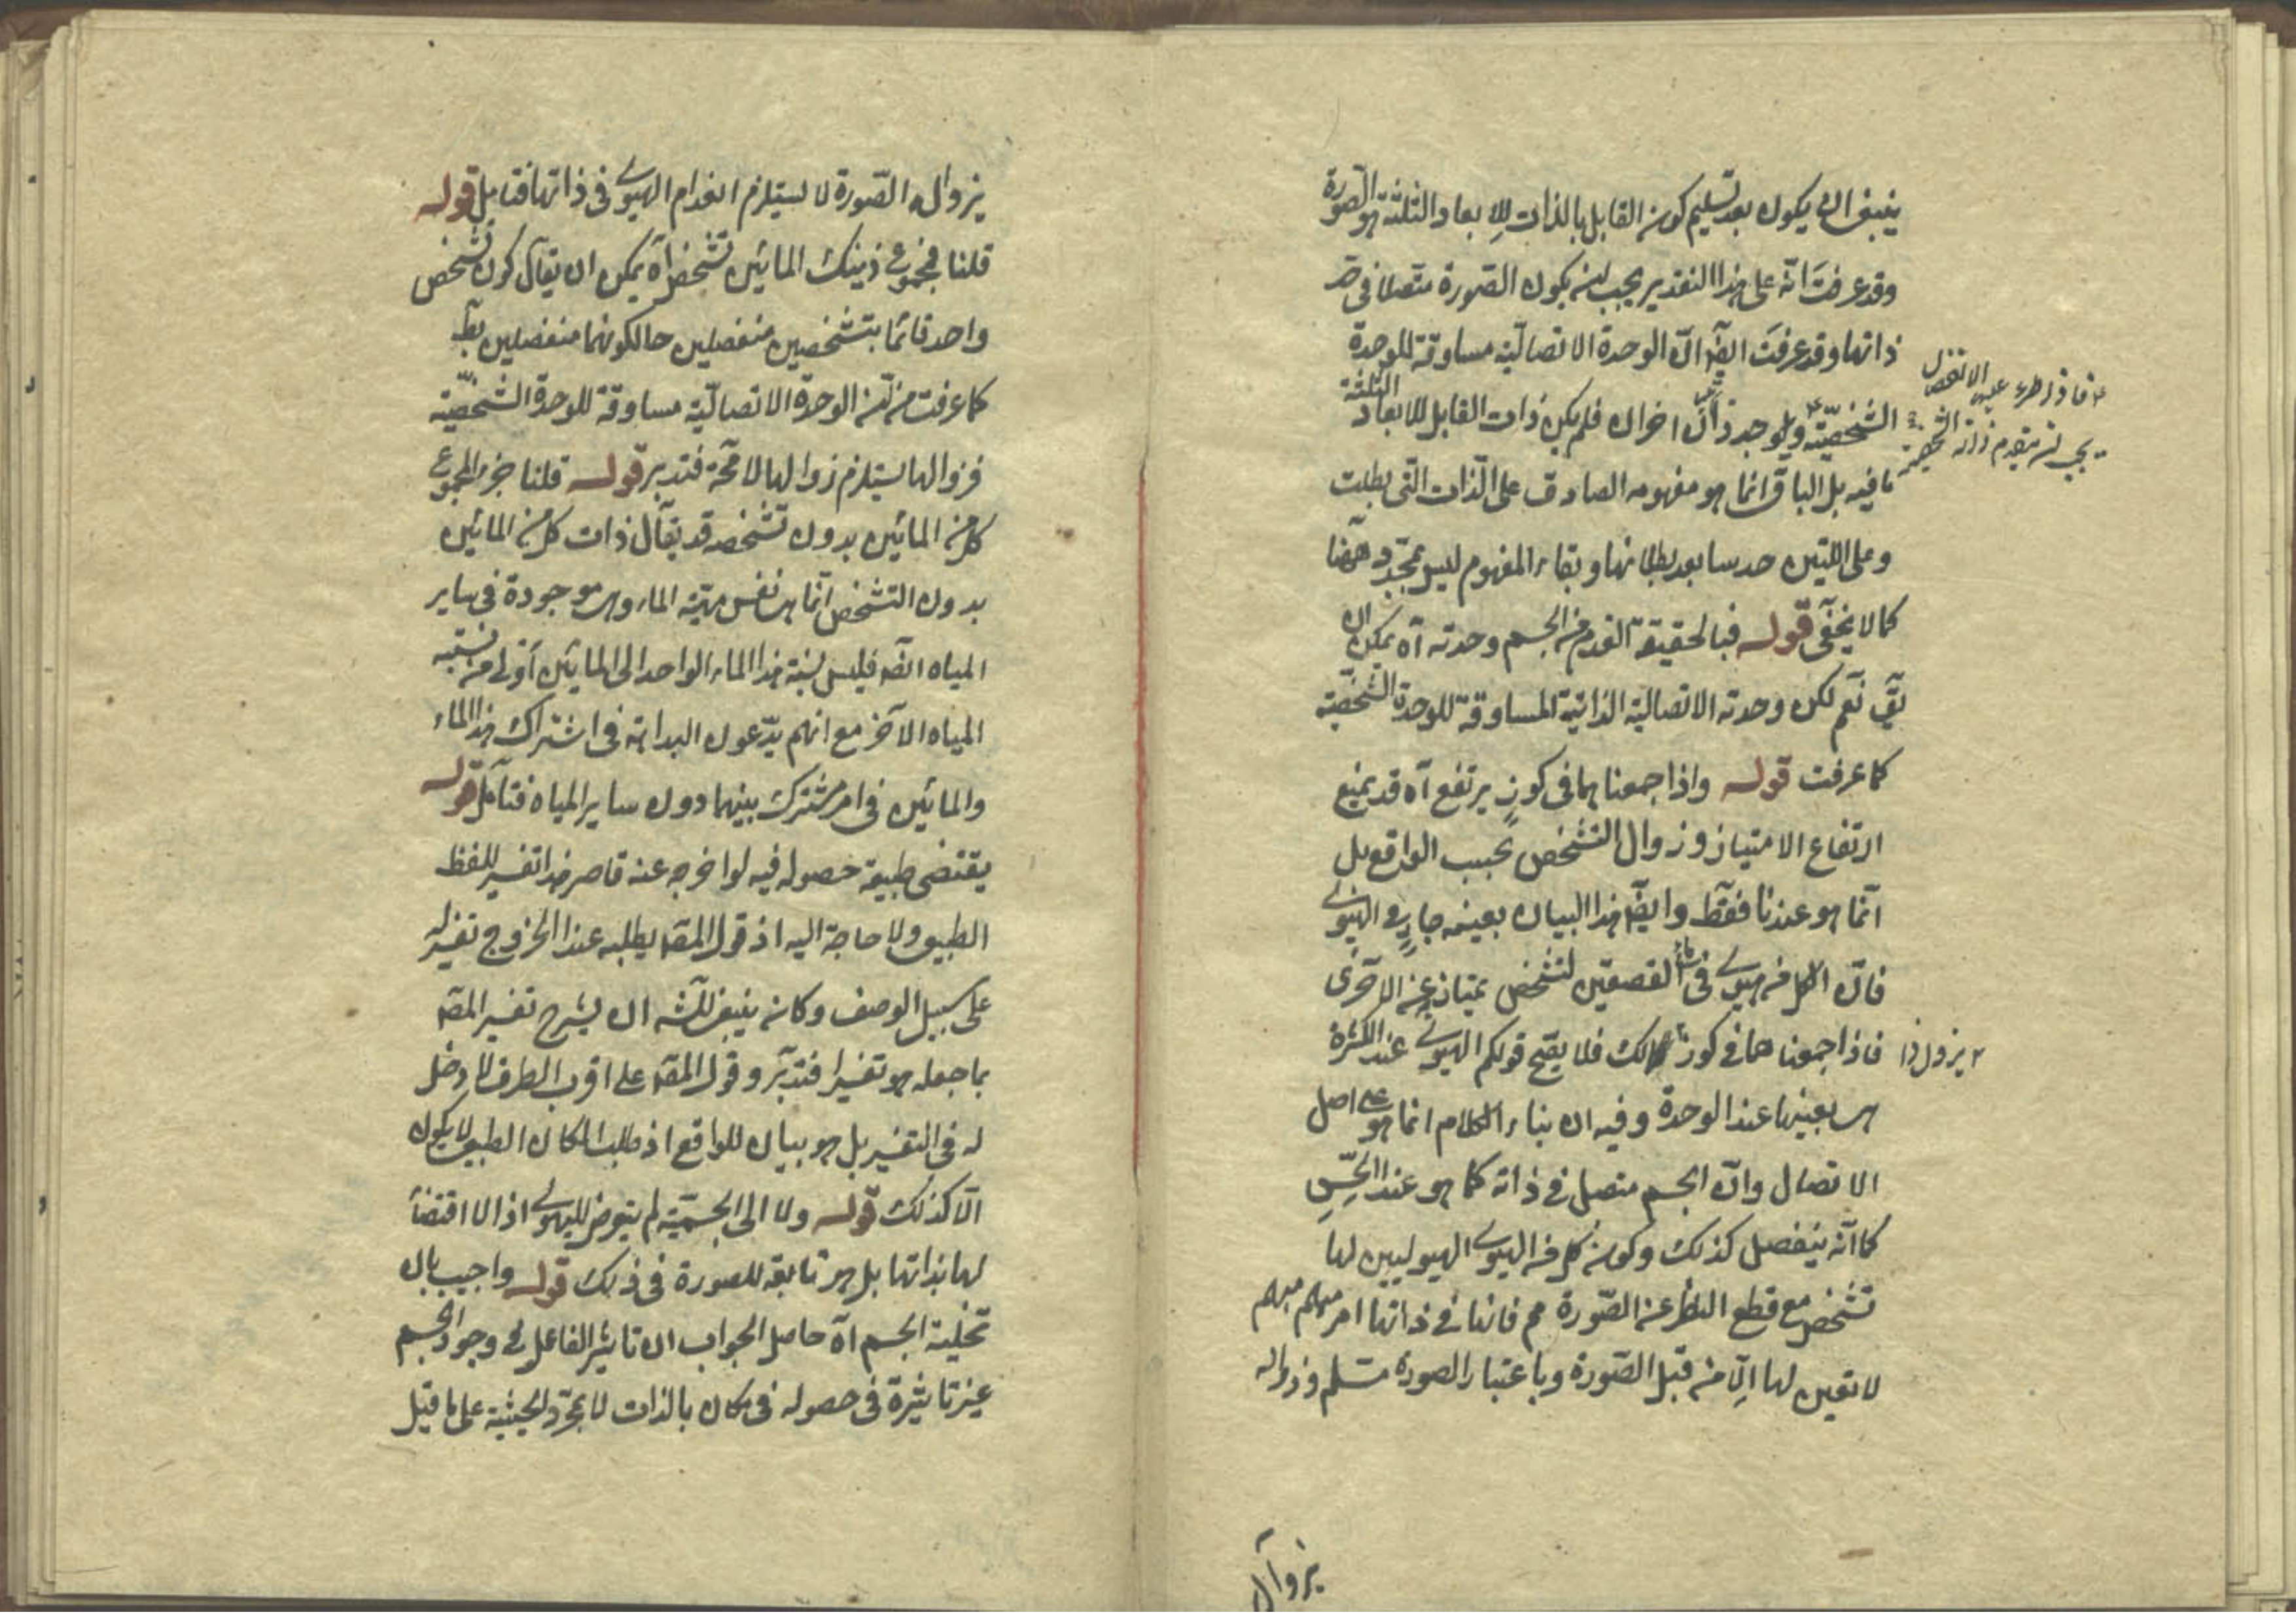 ينبغى ان يكون بعد تسليم كون القابل بالذات للابعاد الثلثة هو الصورة
وقد عرفت انه على هذا التقدير يجب ان يكون الصورة متصلا فى حد
ذاتها وقد عرفت ايضا ان الوحدة الاتصالية مساوقة للوحدة
الشخصية ويوجد ذاتان اخران فلم يكن ذات القابل للابعاد الثلثة
فاذا طرء عليه الانفصال
يجب ان ينعدم ذاته الشخصية
باقيه بل الباقى انما هو مفهومه الصادق على الذات التى بطلت
وعلى اللتين حدسا بعد بطلانها وبقاء المفهوم ليس بمجد ههنا
كما لا يخفى قوله فبالحقيقة انعدم من الجسم وحدته آه يمكن ان
يق نعم لكن وحدته الاتصالية الذاتية المساوقة للوحدة الشخصية
كما عرفت قوله واذا جمعنا هما فى كوز يرتفع آه قد يمنع
ارتفاع الامتياز وزوال التشخص بحسب الواقع بل
انما هو عندنا فقط وايضا هذا البيان بعينه جار فى الهيولى
فان لكل من هيولى ماء فى القصعتين تشخص يمتاز عن الاخرى
فاذا جمعنا هما فى كوز يزول ذلك فلا يصح قولكم الهيولى عند الكثرة
هى بعينها عند الوحدة وفيه ان بناء الكلام انما هو على اصل
الاتصال وان الجسم متصل فى ذاته كما هو عند الحس
كما انه ينفصل كذلك وكون كل من الهيولى الهيوليين لها
تشخص مع قطع النظر عن الصورة مم فانها فى ذاتها امر مبهم مبهم
لا تعين لها الا من قبل الصورة وباعتبار الصورة مسلم وزواله
بزوال
بزوال الصورة لا يستلزم انعدام الهيولى فى ذاتها فتامل قوله
قلنا مجموع ذينك المائين تشخص آه يمكن ان يقال كون تشخص
واحد قائما بتشخصين منفصلين حال كونهما منفصلين بط
كما عرفت من ان الوحدة الاتصالية مساوقة للوحدة الشخصية
فزوالها يستلزم زوالها لا محة فتدبر قوله قلنا جزء المجموع
كل من المائين بدون تشخصه قد يقال ذات كل من المائين
بدون التشخص انما هى نفس مهية الماء وهى موجودة فى ساير
المياه ايضا فليس نسبة هذا الماء الواحد الى المائين اولى من نسبته
المياه الآخر مع انهم يدعون البداهة فى اشتراك هذا الماء
والمائين فى امر مشترك بينهما دون ساير المياه فتامل قوله
يقتضى طبيعة حصوله فيه لو اخرجه عنه قاصر هذا تفسير للفظ
الطبيعى ولا حاجة اليه اذ قول المصه يطلبه عند الخروج تفسير له
على سبيل الوصف وكان ينبغى للشه ان يشرح تفسير المصه
بما جعله هو تفسيرا فتدبر وقول المصه على اقرب الطرف لا دخل
له فى التفسير بل هو بيان للواقع اذ طلب المكان الطبيعى لا يكون
الا كذلك قوله ولا الى الجسمية لم يتعرض للهيولى اذ لا اقتضاء
لها بذاتها بل هى تابعة للصورة فى ذلك قوله واجيب بان
تخلية الجسم آه حاصل الجواب ان تاثير الفاعل فى وجود الجسم
عين تاثيره فى حصوله فى مكان بالذات لا بمجرد الحيثية على ما قيل